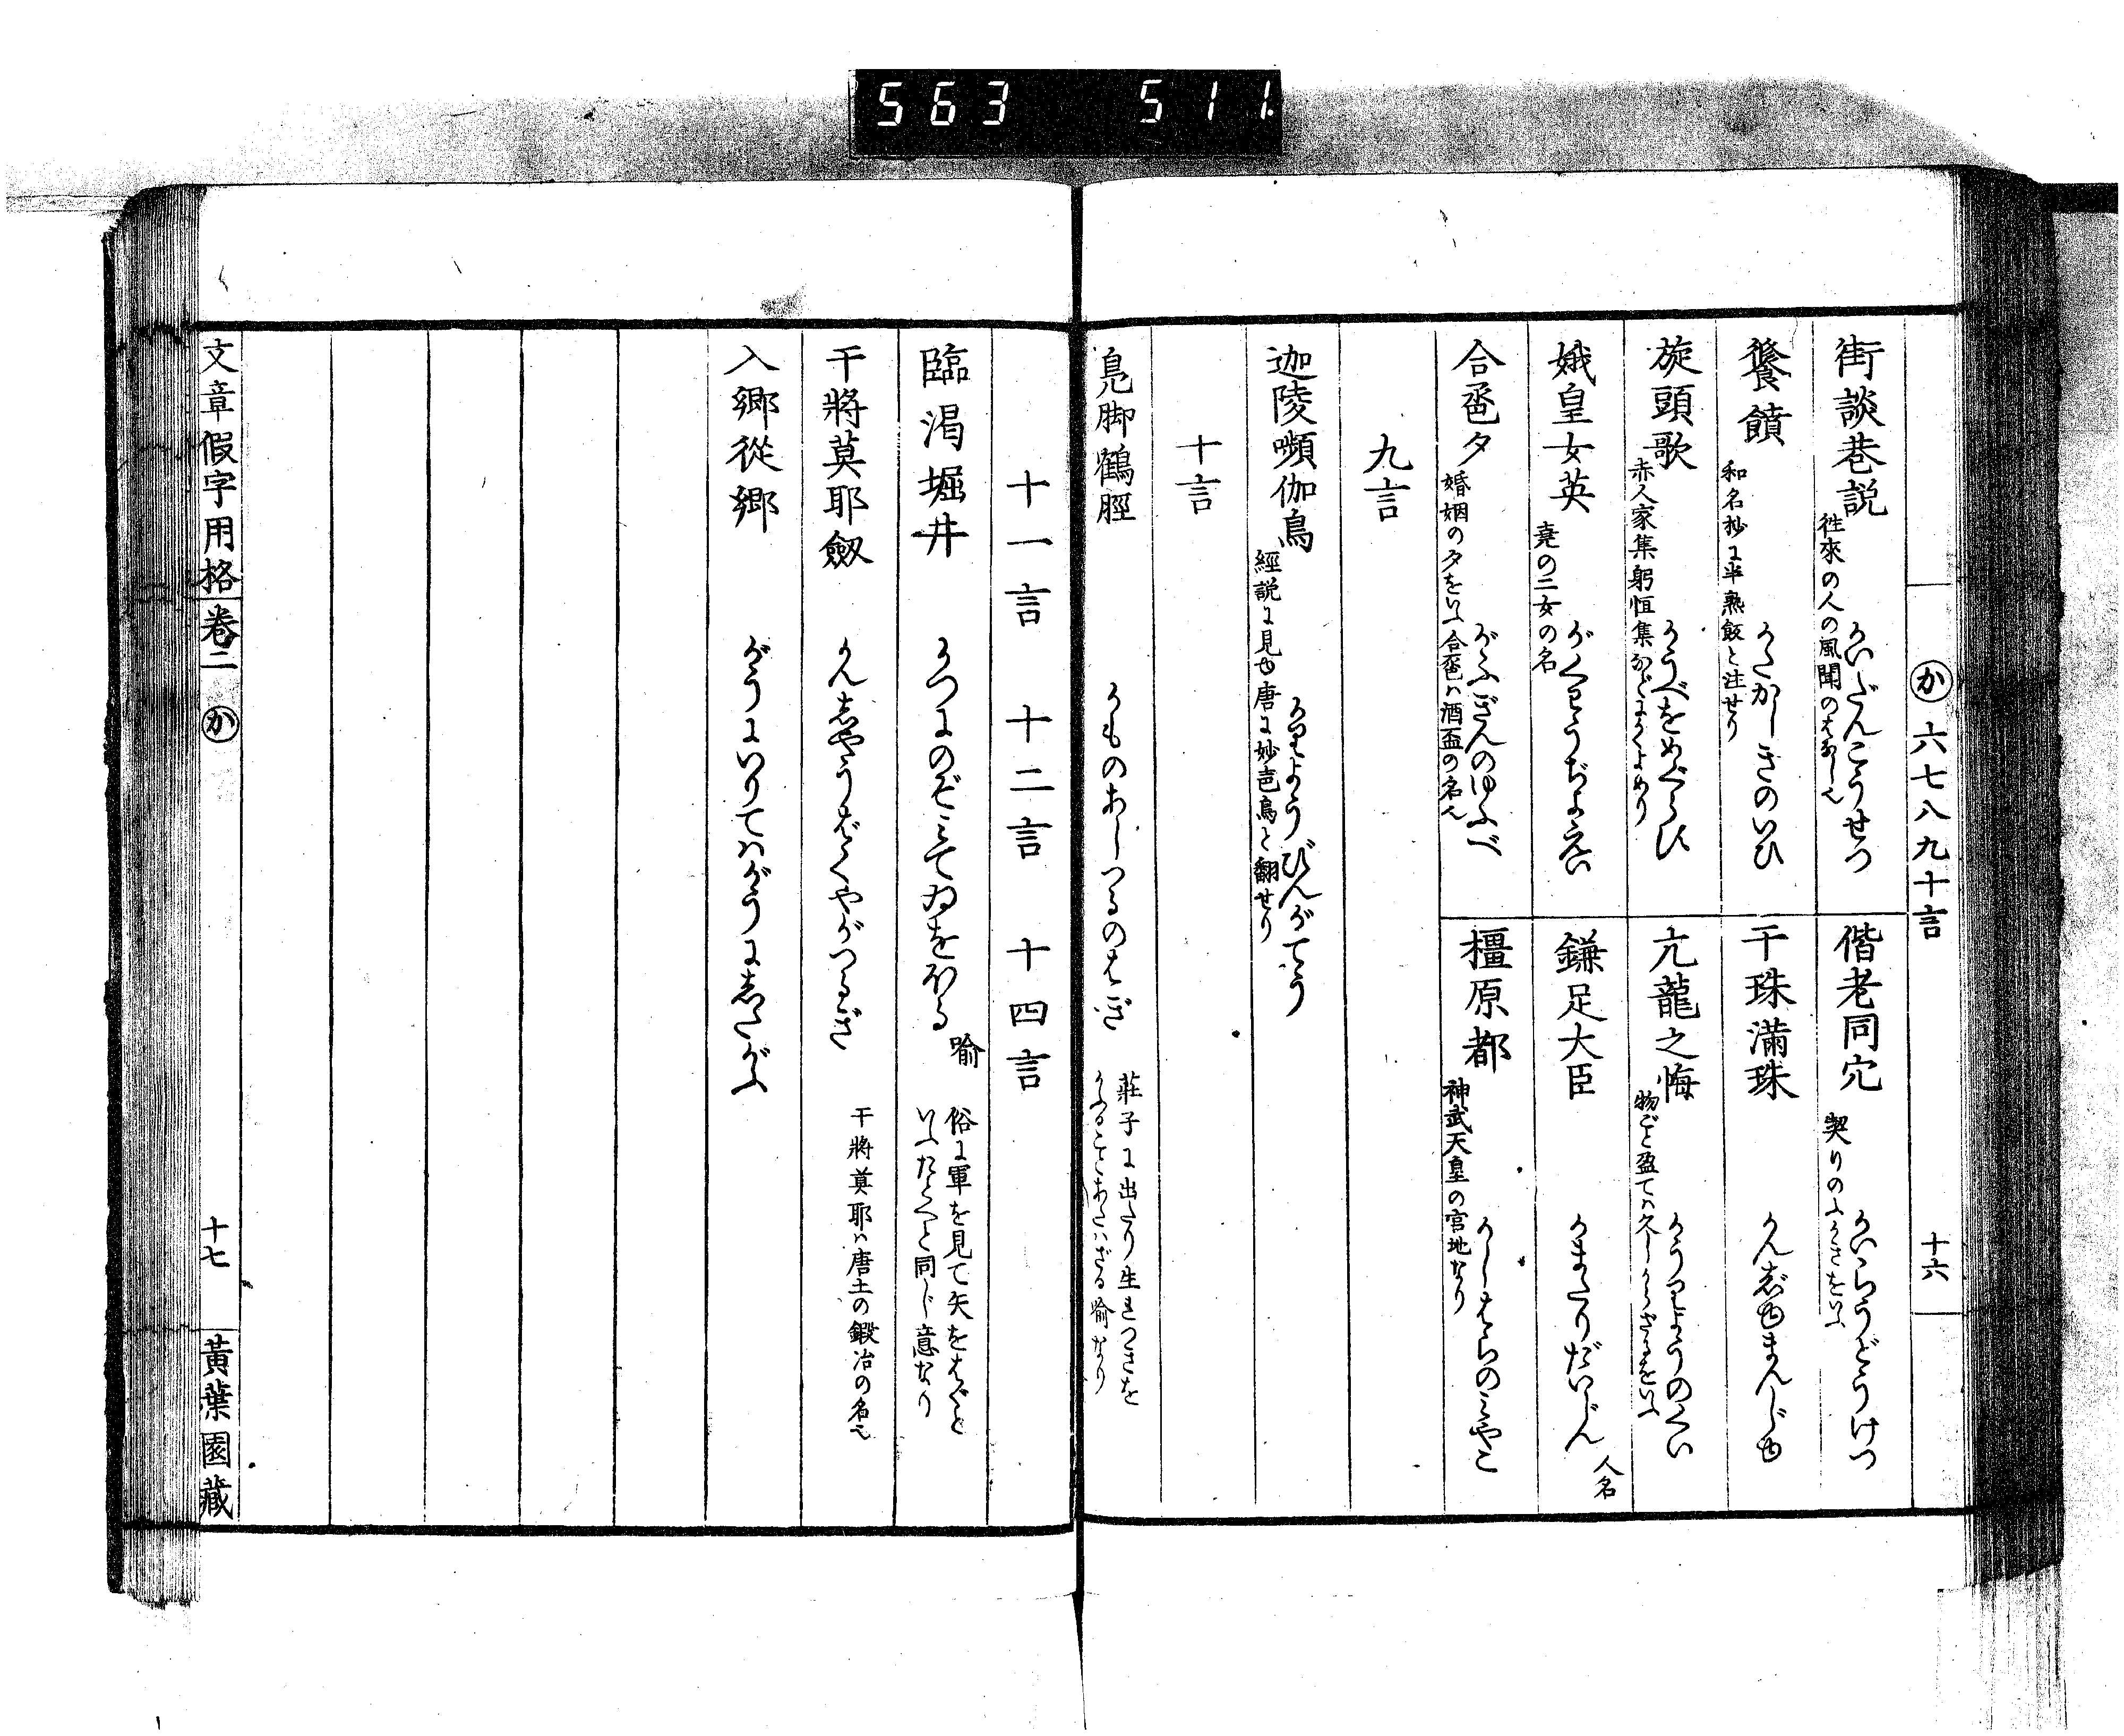 563 511
か 六七八九十言 十六
街談巷説 かいだんこうせつ
徃來の人の風聞のはなし也
偕老同穴 かいらうどうけつ
契りのふかさをいふ
餐饋 かたかしきのいひ
和名抄に半熟飯と注せり
干珠満珠 かんじゆまんじゆ
旋頭歌 かうべをめぐらひ
赤人家集躬恒集などにかくよめり
亢龍之悔 かうりようのくい
物ごと盈てハ久しからざるをいふ
娥皇女英 がくわうぢよえい
尭の二女の名
鎌足大臣 かまたりだいじん 人名
合巹夕 がふぎんのゆふべ
婚姻の夕をいふ合巹ハ酒盃の名也
橿原都 かしはらのみやこ
神武天皇の宮地なり
九言
迦陵嚬伽鳥 かりようびんがてう
經説に見ゆ唐に妙音鳥と翻せり
十言
鳧脚鶴脛 かものあしつるのはぎ
莊子に出たり生れつきを
かふることあたハざる喩なり
十一言 十二言 十四言
臨渇堀井 かつにのぞみてゐをほる 喩
俗に軍を見て矢をはぐと
いふたとへと同じ意なり
干將莫耶劔 かんしやうばくやがつるぎ
干將莫耶ハ唐土の鍛冶の名也
入郷從郷 がうにいりてハがうにしたがふ
文章假字用格 卷二 か 十七 黄葉園藏